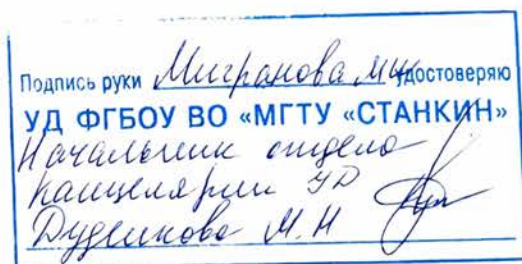 Подпись руки Мигранова М.Ш. удостоверяю
УД ФГБОУ ВО «МГТУ «СТАНКИН»
Начальник отдела
канцелярии УД
М.Н